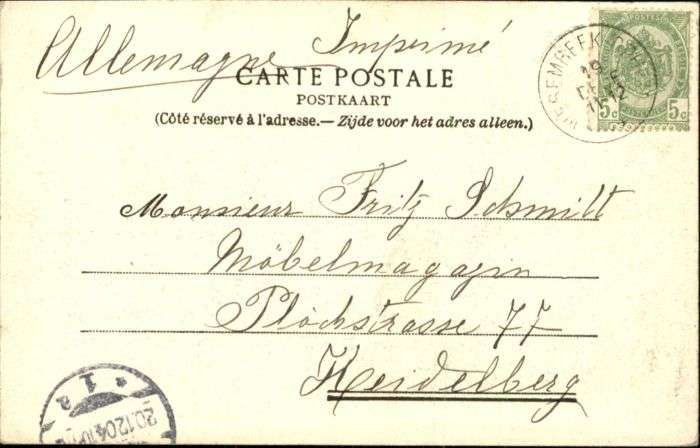 Allemagne Imprimé
CARTE POSTALE
POSTKAART
(Côté réservé à l'adresse.— Zijde voor het adres alleen.)
POSTES
5c 5c
19
DECE
11-12
Monsieur Fritz Schmitt
Möbelmagazin
Plöckstrasse 77
Heidelberg
* 1 a
20.12.04.10